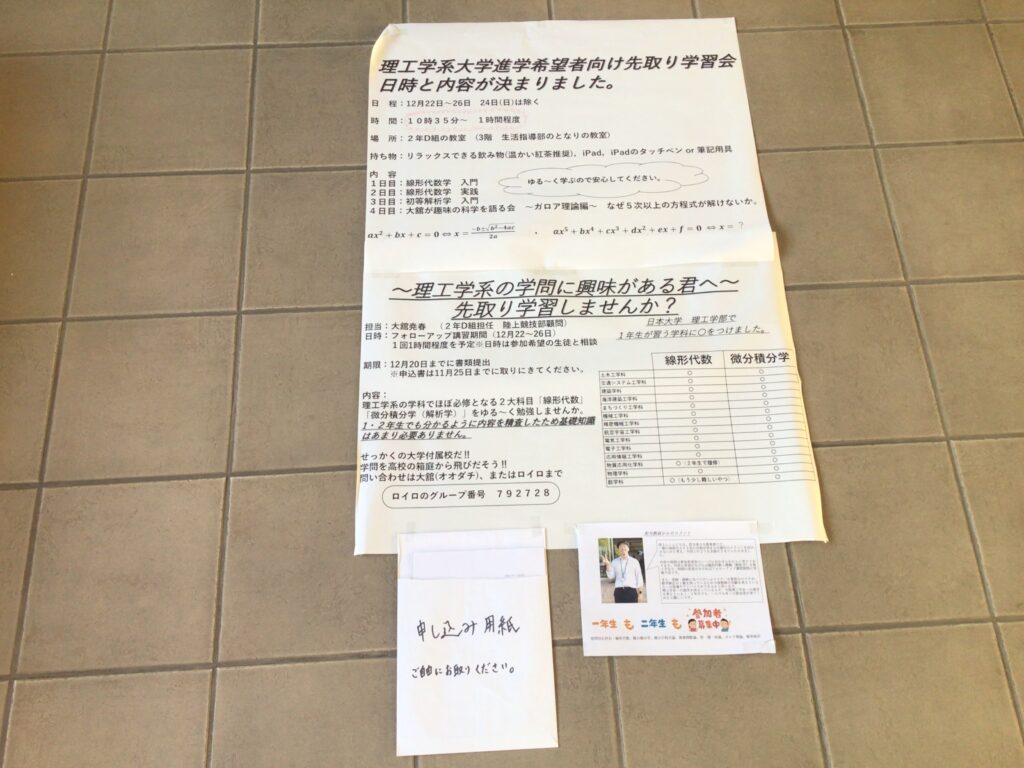 理工学系大学進学希望者向け先取り学習会
日時と内容が決まりました。
日　程：12月22日～26日　24日(日)は除く
時　間：１０時３５分～　１時間程度
場　所：２年D組の教室　（3階　生活指導部のとなりの教室）
持ち物：リラックスできる飲み物(温かい紅茶推奨)，iPad，iPadのタッチペン or 筆記用具
内　容
１日目：線形代数学　入門
２日目：線形代数学　実践
３日目：初等解析学　入門
４日目：大舘が趣味の科学を語る会　～ガロア理論編～　なぜ５次以上の方程式が解けないか。
ゆる～く学ぶので安心してください。
ax²＋bx＋c＝0 ⇔ x＝(−b±√(b²−4ac))/2a　，　ax⁵＋bx⁴＋cx³＋dx²＋ex＋f＝0 ⇔ x＝？
～理工学系の学問に興味がある君へ～
先取り学習しませんか？
担当：大舘尭春　（２年D組担任　陸上競技部顧問）
日時：フォローアップ講習期間（12月22～26日）
１回１時間程度を予定※日時は参加希望の生徒と相談
期限：12月20日までに書類提出
※申込書は11月25日までに取りにきてください。
内容：
理工学系の学科でほぼ必修となる２大科目「線形代数」
「微分積分学（解析学）」をゆる～く勉強しませんか。
１・２年生でも分かるように内容を精査したため基礎知識
はあまり必要ありません。
せっかくの大学付属校だ‼
学問を高校の箱庭から飛びだそう‼
問い合わせは大舘(オオダチ)、またはロイロまで
ロイロのグループ番号　７９２７２８
日本大学　理工学部で
１年生が習う学科に〇をつけました。
線形代数　微分積分学
土木工学科　〇　〇
交通システム工学科　〇　〇
建築学科　〇　〇
海洋建築工学科　〇　〇
まちづくり工学科　〇　〇
機械工学科　〇　〇
精密機械工学科　〇　〇
航空宇宙工学科　〇　〇
電気工学科　〇　〇
電子工学科　〇　〇
応用情報工学科　〇　〇
物質応用化学科　〇（２年生で履修）　〇
物理学科　〇　〇
数学科　〇（もう少し難しいやつ）　〇
申し込み用紙
ご自由にお取りください。
一年生 も 二年生 も 参加者
募集中